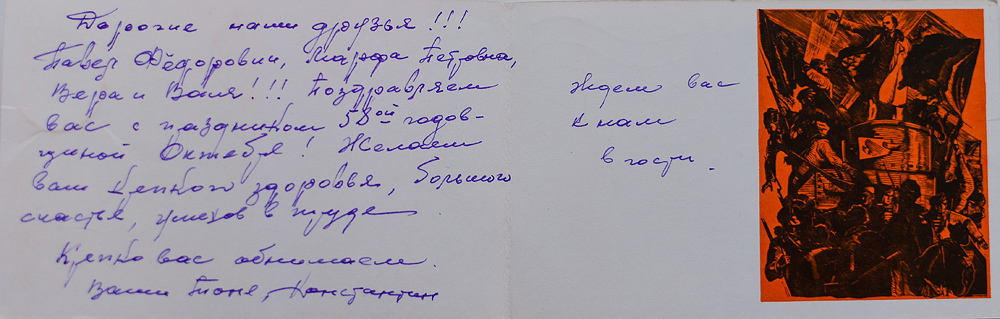 Дорогие наши друзья!!!
Павел Фёдорович, Марфа Петровна,
Вера и Валя!!! Поздравляем
вас с праздником 58ой годов-
щиной Октября! Желаем
вам крепкого здоровья, большого
счастья, успехов в труде
Крепко вас обнимаем.
Ваши Тоня, Константин
Ждем вас
к нам
в гости.